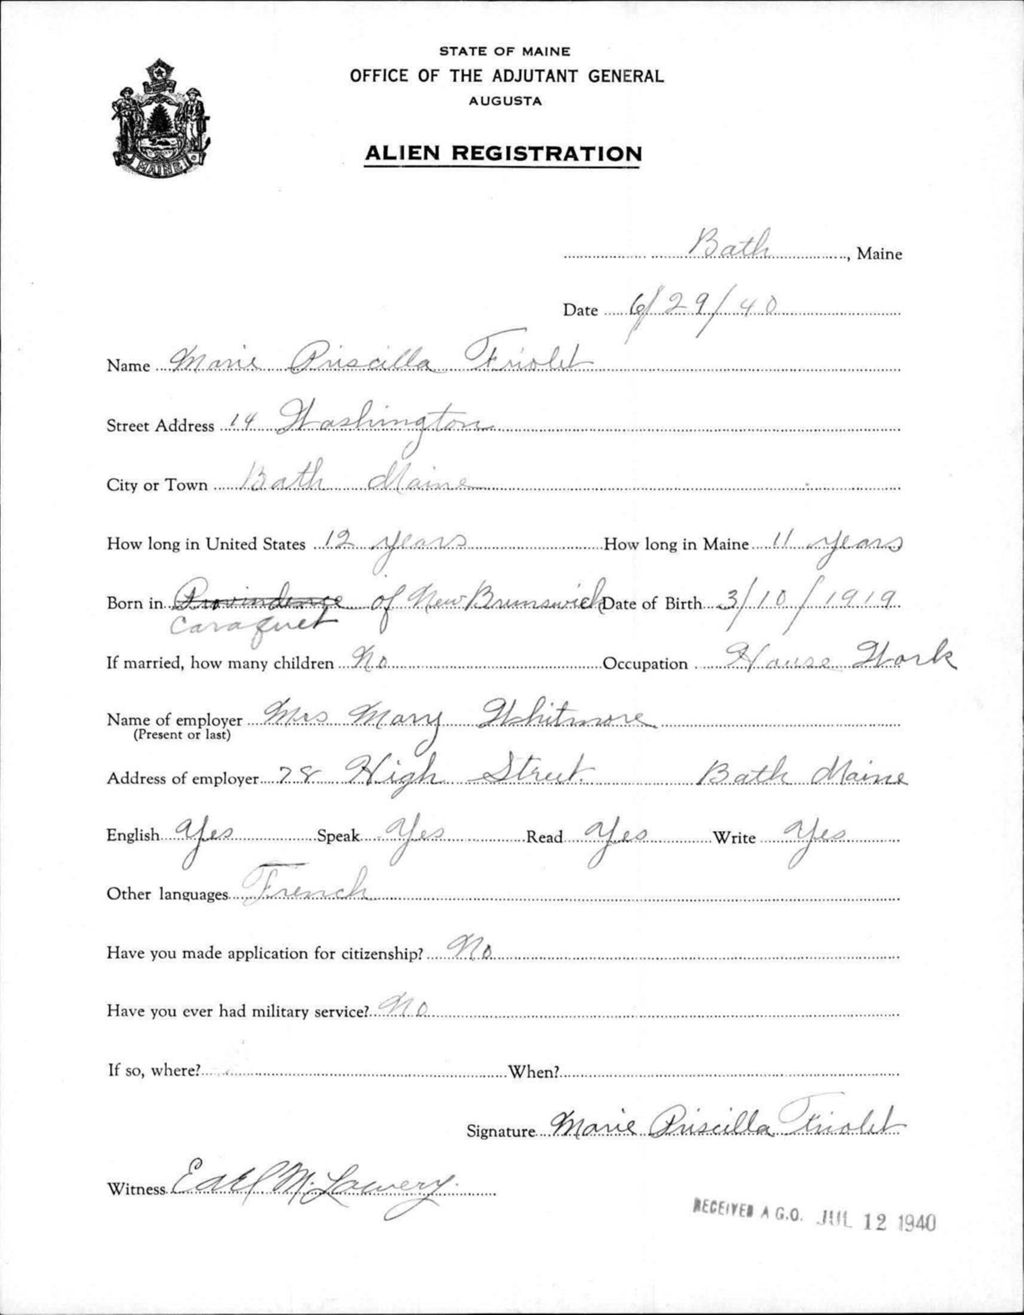 STATE OF MAINE
OFFICE OF THE ADJUTANT GENERAL
AUGUSTA
ALIEN REGISTRATION
MAINE
Bath, Maine
Date 6/29/40
Name Marie Priscilla Friolet
Street Address 14 Washington
City or Town Bath Maine
How long in United States 12 years How long in Maine 11 years
Born in Providence of New Brunswick Date of Birth 3/10/1919
Caraquet
If married, how many children No Occupation House Work
Name of employer Mrs Mary Whitmore
(Present or last)
Address of employer 78 High Street Bath Maine
English Yes Speak Yes Read Yes Write Yes
Other languages French
Have you made application for citizenship? No
Have you ever had military service? No
If so, where? When?
Signature Marie Priscilla Friolet
Witness Earl M. Lowery.
RECEIVED A.G.O. JUL 12 1940